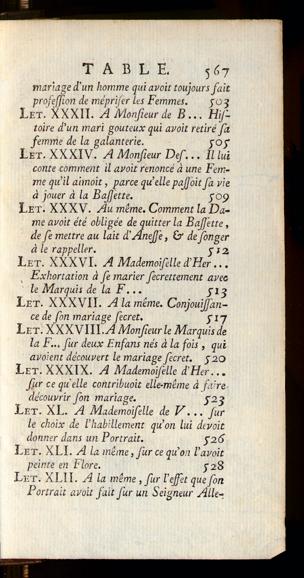 TABLE. 567
mariage d'un homme qui avoit toujours fait
profeſſion de mépriſer les Femmes. 503
LET. XXXII. A Monſieur de B... Hiſ-
toire d'un mari gouteux qui avoit retiré ſa
femme de la galanterie. 505
LET. XXXIV. A Monſieur Deſ... Il lui
conte comment il avoit renoncé à une Fem-
me qu'il aimoit, parce qu'elle paſſoit ſa vie
à jouer à la Baſſette. 509
LET. XXXV. Au même. Comment la Da-
me avoit été obligée de quitter la Baſſette,
de ſe mettre au lait d'Aneſſe, & de ſonger
à le rappeller. 512
LET. XXXVI. A Mademoiſelle d'Her...
Exhortation à ſe marier ſecrettement avec
le Marquis de la F... 513
LET. XXXVII. A la même. Conjouiſſan-
ce de ſon mariage ſecret. 517
LET. XXXVIII. A Monſieur le Marquis de
la F... ſur deux Enfans nés à la fois, qui
avoient découvert le mariage ſecret. 520
LET. XXXIX. A Mademoiſelle d'Her...
ſur ce qu'elle contribuoit elle-même à faire
découvrir ſon mariage. 523
LET. XL. A Mademoiſelle de V... ſur
le choix de l'habillement qu'on lui devoit
donner dans un Portrait. 526
LET. XLI. A la même, ſur ce qu'on l'avoit
peinte en Flore. 528
LET. XLII. A la même, ſur l'effet que ſon
Portrait avoit fait ſur un Seigneur Alle-